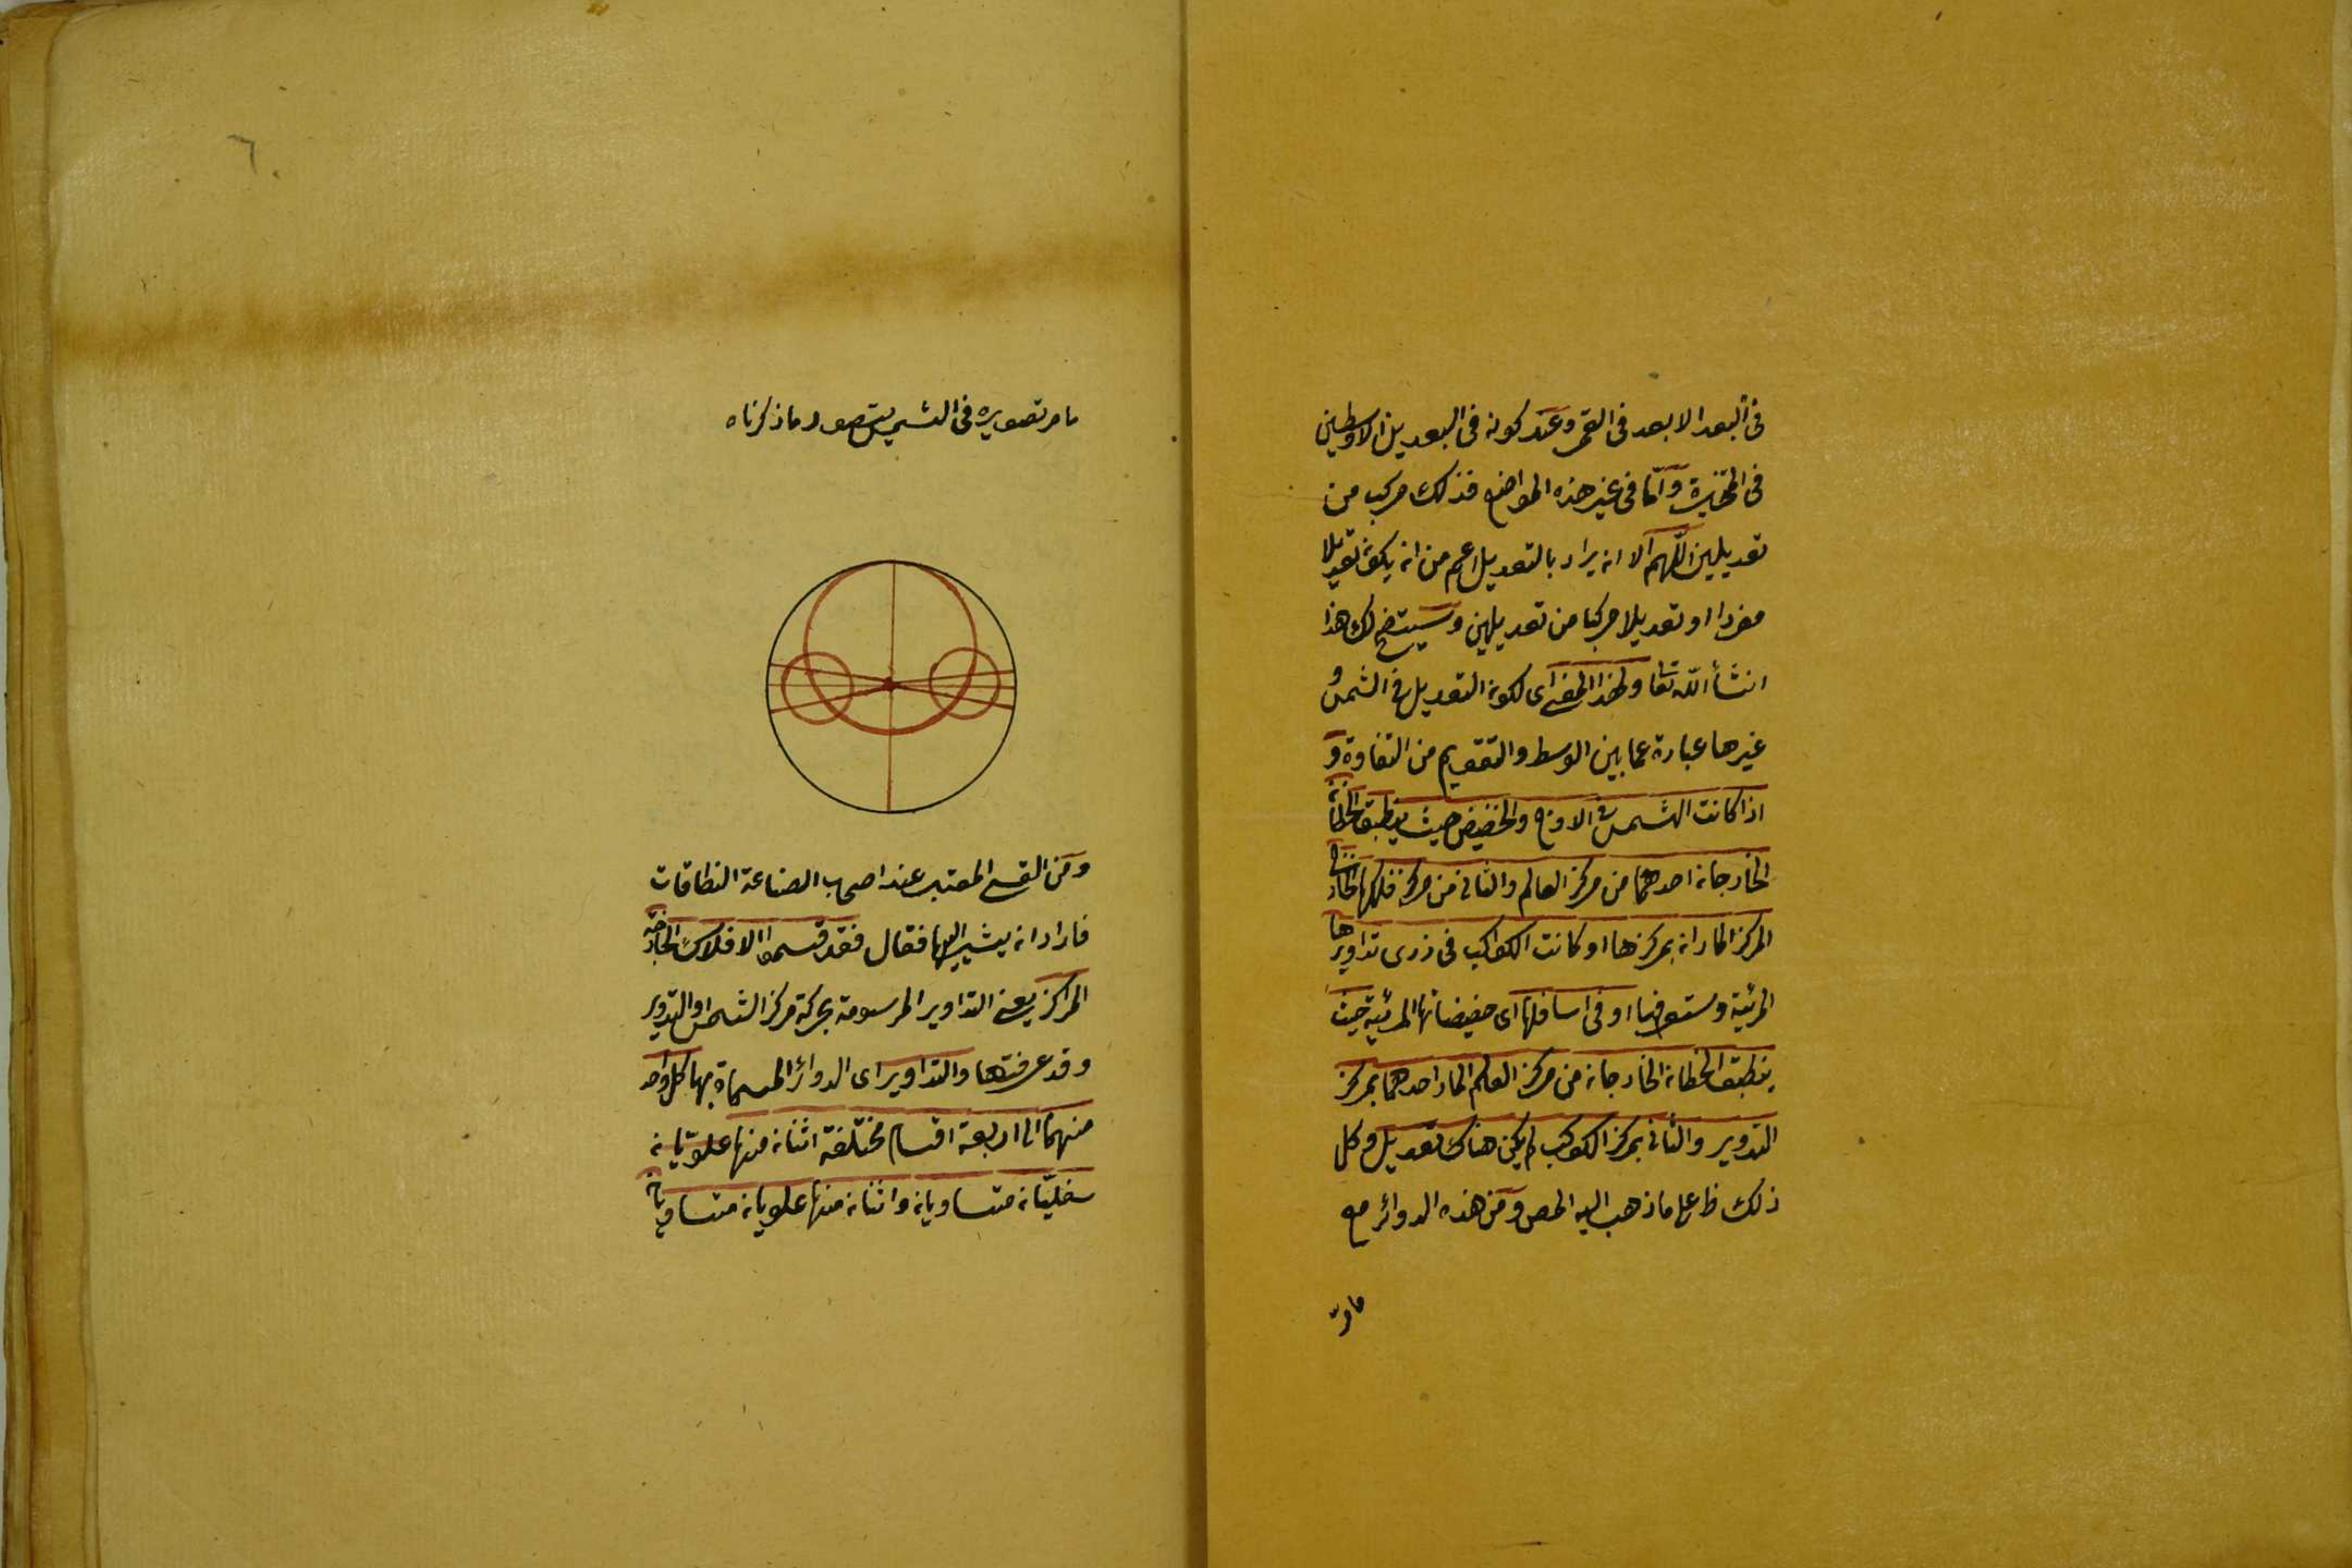 في البعد الابعد في القمر وعند كونه في البعدين الاوسطين
في المتحيرة وامّا في غير هذه المواضع فذلك مركب من
تعديلين اللّهم الا ان يراد بالتعديل اعم من ان يكون تعديلا
مفردا او تعديلا مركبا من تعديلين وسيتضح لك هذا
انشأ اللّه تعا ولهذا المعنى اى لكون التعديل في الشمس و
غيرها عبارة عما بين الوسط والتقويم من التفاوة و
اذا كانت الشمس في الاوج والحضيض حيث ينطبق الخطان
الخارجان احدهما من مركز العالم والثاني من مركز فلكها الخارج
المركز الماران بمركزها او كانت الكواكب في ذرى تداويرها
المرئية وستعرفها او في اسافلها اى حضيضاتها المرئية حيث
ينطبق الخطان الخارجان من مركز العالم المار احدهما بمركز
التدوير والثاني بمركز الكوكب لم يكن هناك تعديل وكل
ذلك ظ على ما ذهب اليه المص ومن هذه الدوائر مع
ما مرّ
٦
ما مر تصويره في الشمس يتصور ما ذكرناه
ومن القسي المعتبر عند اصحاب الصناعة النطاقات
فاراد ان يشير اليها فقال فقد قسموا الافلاك الخارجة
المراكز يعني التداوير المرسومة بحركة مركز الشمس او التدوير
وقد عرفتها والتداوير اى الدوائر المسماة بها كل واحد
منهما الى اربعة اقسام مختلفة اثنان منها علويّان
سفليّان متساويان واثنان منها علويان متساويان